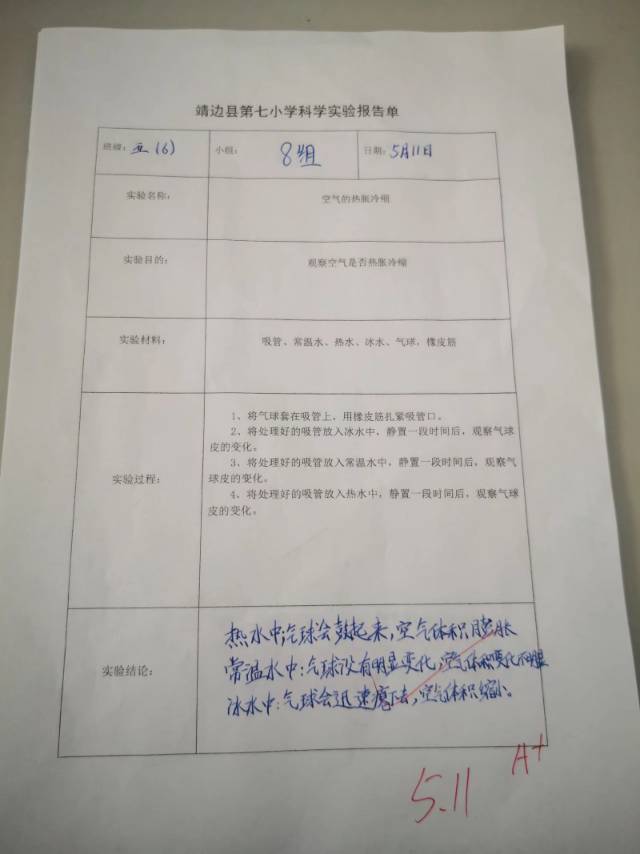 靖边县第七小学科学实验报告单
班级：五（6） 小组：8组 日期：5月11日
实验名称： 空气的热胀冷缩
实验目的： 观察空气是否热胀冷缩
实验材料： 吸管、常温水、热水、冰水、气球，橡皮筋
实验过程：
1、将气球套在吸管上，用橡皮筋扎紧吸管口。
2、将处理好的吸管放入冰水中，静置一段时间后，观察气球
皮的变化。
3、将处理好的吸管放入常温水中，静置一段时间后，观察气
球皮的变化。
4、将处理好的吸管放入热水中，静置一段时间后，观察气球
皮的变化。
实验结论：
热水中气球会鼓起来，空气体积膨胀
常温水中：气球没有明显变化，空气体积变化不明显
冰水中：气球会迅速瘪下去，空气体积缩小。
A+
5.11